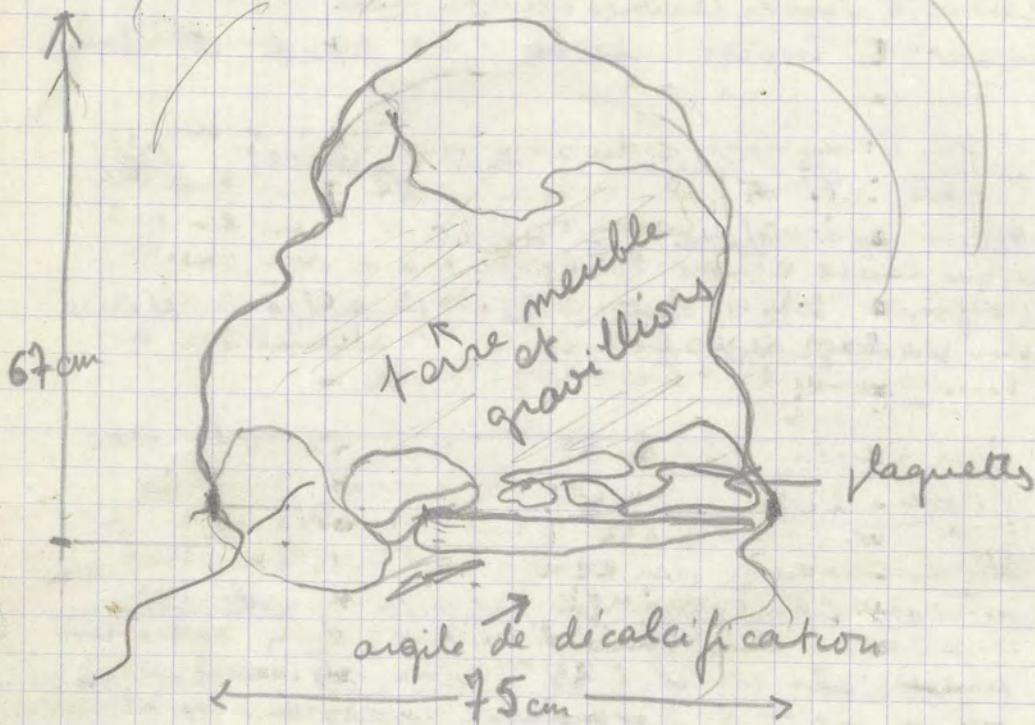 terre meuble
et
gravillions
67 cm
plaquettes
argile de décalcification
75 cm